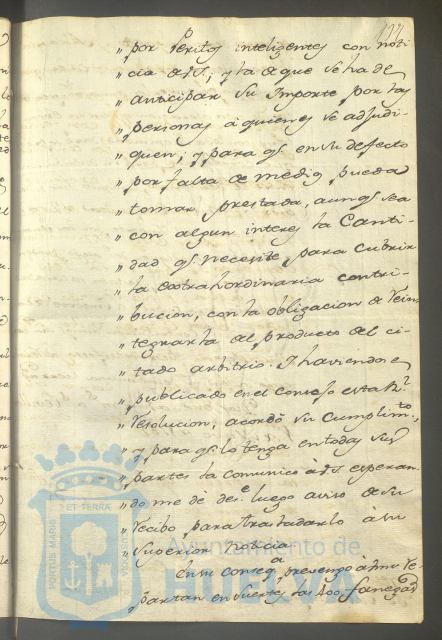 "por Peritos inteligentes con noti-
"cia de V.; y la de que se ha de
"anticipar su Importe por las
"personas à quienes se adjudi-
"quen; y para qe. en su defecto
"por falta de medios pueda
"tomar prestada, aunqe. sea
"con algun interes la Canti-
"dad qe. necesite, para cubrir
"la extrahordinaria contri-
"bucion, con la obligacion de rein-
"tegrarla del producto del ci-
"tado arbitrio. Y haviendose
"publicado en el consejo esta Rl.
"resolucion, acordò su cumplimto.,
"y para qe. lo tenga en todas sus
"partes la comunico à V. esperan-
"do me dè desde luego aviso de su
"recibo para trasladarlo à su
"superior noticia
En su conseqa. prevengo à Vms. re-
partan en suertes las 400 fanegas
PORTUS MARIS ET TERRA
Ayuntamiento de
HUELVA